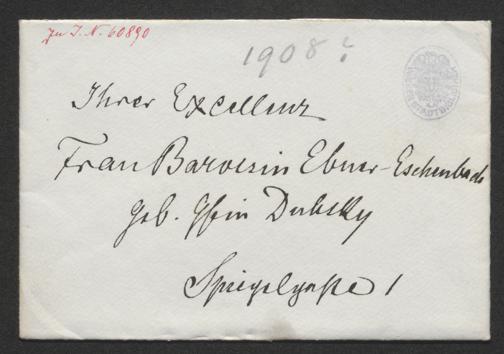 Zu I. N. 60890
1908?
Ihrer Excellenz
Frau Baronin Ebner-Eschenbach
geb. Gfin Dubsky
Spiegelgasse 1